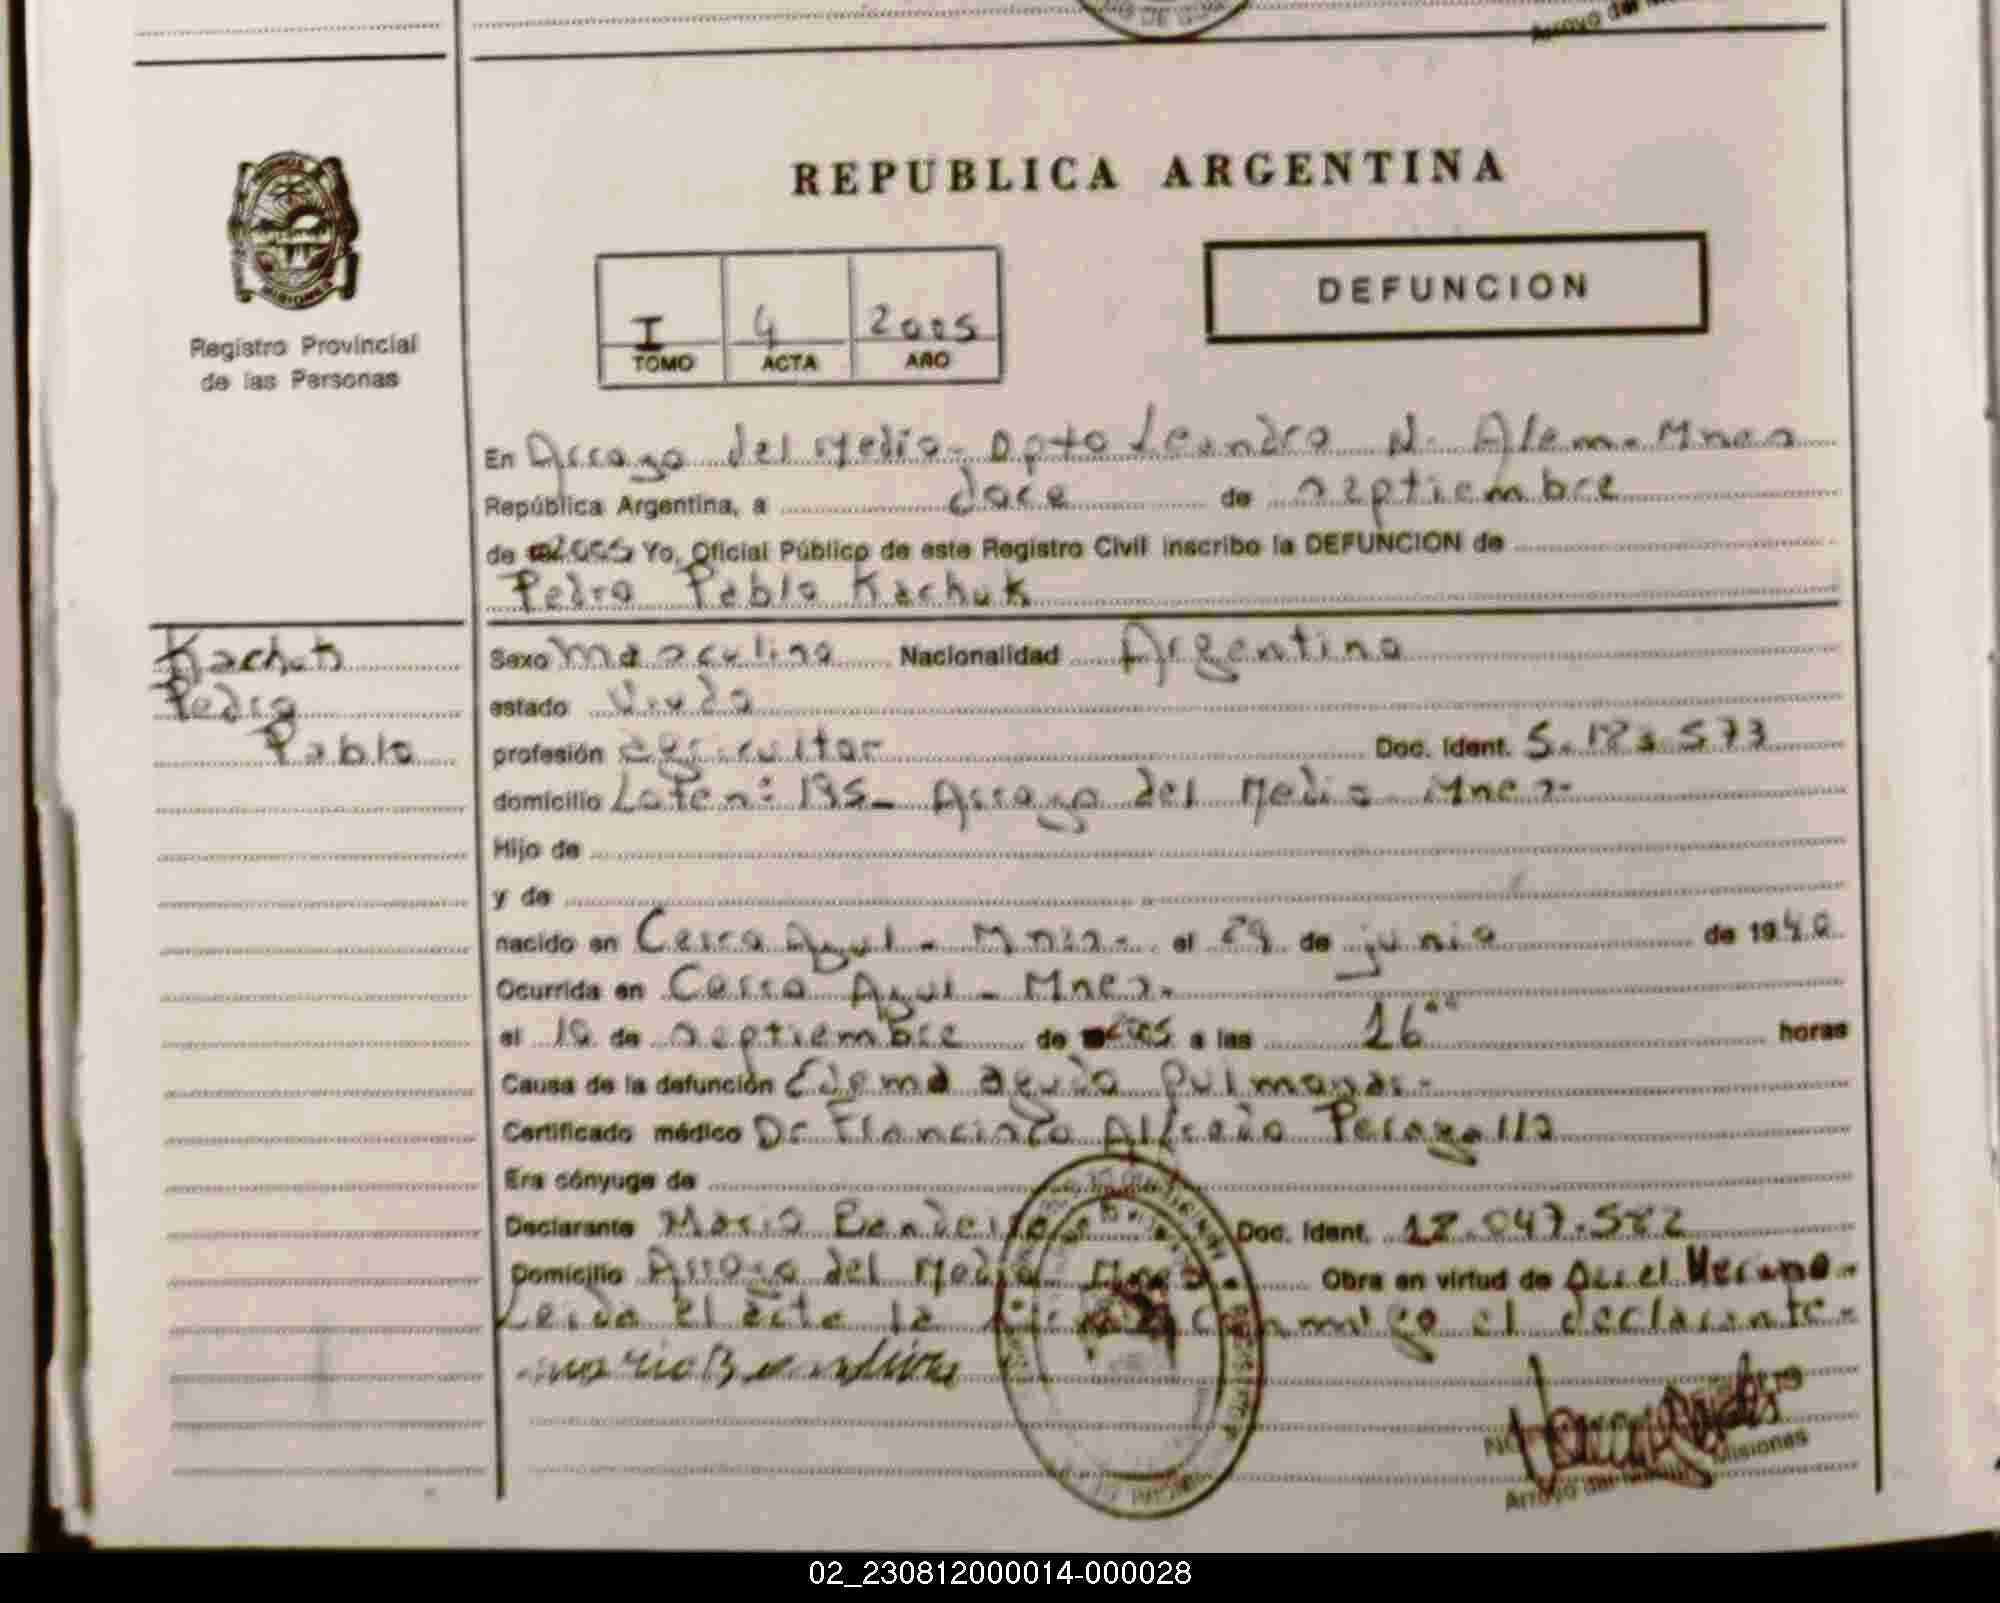 REPUBLICA ARGENTINA
DEFUNCION
I 4 2005
TOMO ACTA AÑO
Registro Provincial
de las Personas
En Arroyo del Medio - Dpto Leandro N. Alem - Mnes
República Argentina, a doce de septiembre
de 2005 Yo, Oficial Público de este Registro Civil inscribo la DEFUNCION de
Pedro Pablo Kachuk
Kachuk
Pedro
Pablo
Sexo masculino Nacionalidad Argentina
estado Viudo
profesión agricultor Doc. Ident.
domicilio Arroyo del Medio Mnes -
Hijo de
y de
nacido en Cerro Azul - Mnes - el 29 de junio de 1940
Ocurrida en Cerro Azul - Mnes -
el 10 de septiembre de 2005 a las 16 horas
Causa de la defunción Edema agudo pulmonar -
Certificado médico Dr Francisco Alfredo
Era cónyuge de
Declarante Mario Bandeira Doc. Ident.
Domicilio Arroyo del Medio Mnes - Obra en virtud de
Leida el acta la conmigo el declarante -
Arroyo del Misiones
02_230812000014-000028